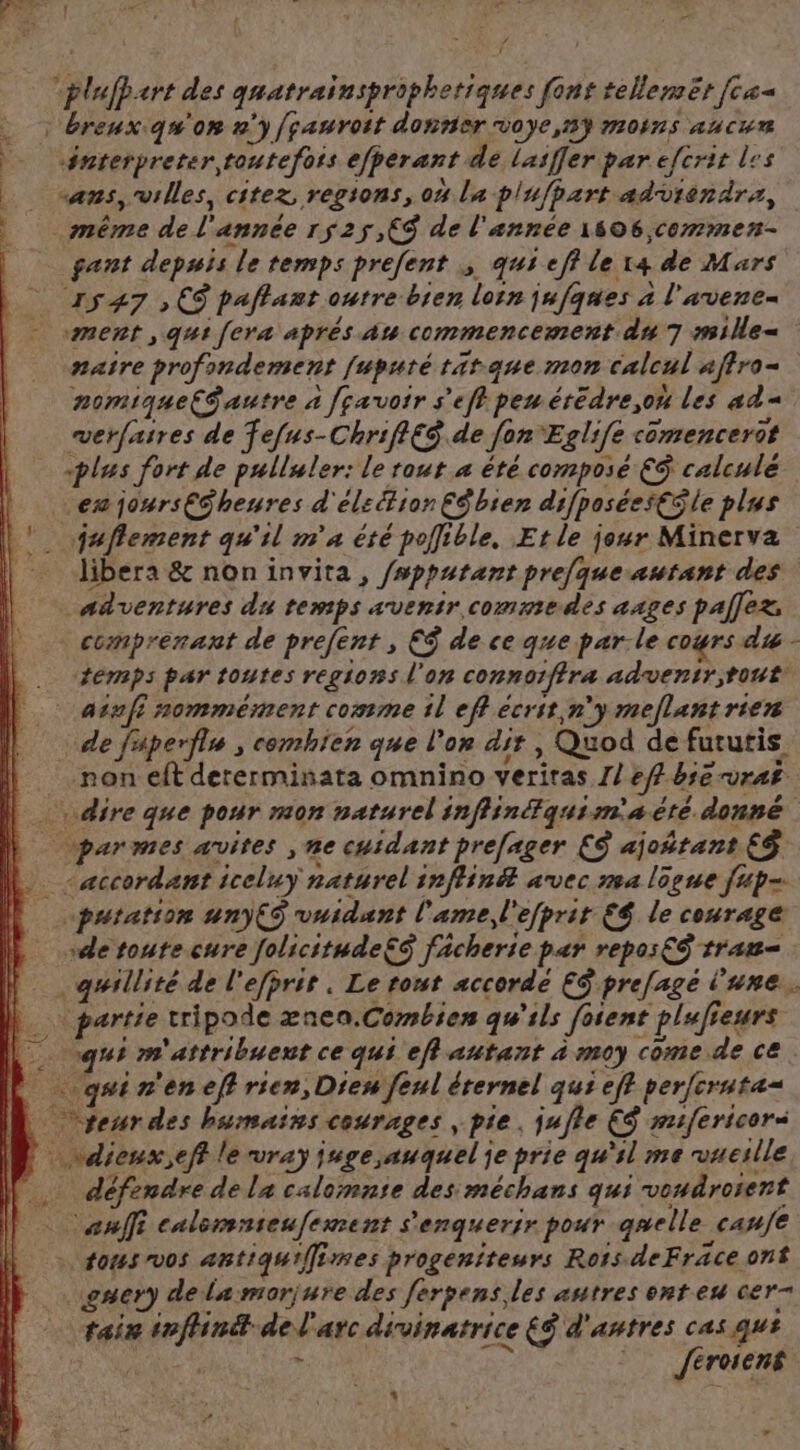 pluſpart des quatrainsprophetiques ſont tellemẽt ſca-
breux qu'on n'y ſçauroit donner voye,ny moins aucun
interpreter,toutefois eſperant de laiſſer par eſcrit les
ans, villes, citez, regions, où la pluſpart adviendra,
même de l'année 1525,& de l'année 1606,commen-
çant depuis le temps preſent , qui eſt le 14 de Mars
1547 ,& paſſant outre bien loin juſques à l'avene-
ment , qui ſera aprés au commencement du 7 mille-
naire profondement ſuputé tãt que mon calcul aſtro-
nomique & autre à ſçavoir s'eſt peu étẽdre,où les ad-
verſaires de Jeſus-Chriſt & de ſon Egliſe cõmencerõt
plus fort de pulluler: le tout a été composé & calculé
en jours & heures d'élection & bien diſposées & le plus
juſtement qu'il m'a été poſſible, Et le jour Minerva
libera & non invita , ſupputant preſque autant des
adventures du temps avenir comme des aages paſſez,
comprenant de preſent , & de ce que par le cours du
temps par toutes regions l'on connoiſtra advenir,tout
ainſi nommément comme il eſt écrit,n'y meſlant rien
de ſuperflu , combien que l'on dit , Quod de fututis
non eſt determinata omnino veritas Il eſt biẽ vrai
dire que pour mon naturel inſtinct qui m'a été donné
par mes avites , ne cuidant preſager & ajoûtant &
accordant iceluy naturel inſtinct avec ma lõgue ſup-
putation uny & vuidant l'ame,l'eſprit & le courage
de toute cure ſolicitude & fâcherie par repos & tran-
quillité de l'eſprit . Le tout accordé & preſagé l'une
partie tripode æneo.Combien qu'ils ſoient pluſieurs
qui m'attribuent ce qui eſt autant à moy cõme de ce
qui n'en eſt rien,Dieu ſeul éternel qui eſt perſcruta-
teur des humains courages , pie , juſte & miſericor-
dieux,eſt le vray juge,auquel je prie qu'il me vueille
défendre de la calomnie des méchans qui voudroient
auſſi calomnieuſement s'enquerir pour quelle cauſe
tous vos antiquiſſimes progeniteurs Rois de Frãce ont
guery de la morjure des ſerpens,les autres ont eu cer-
tain inſtinct de l'arc divinatrice & d'autres cas qui
ſeroient